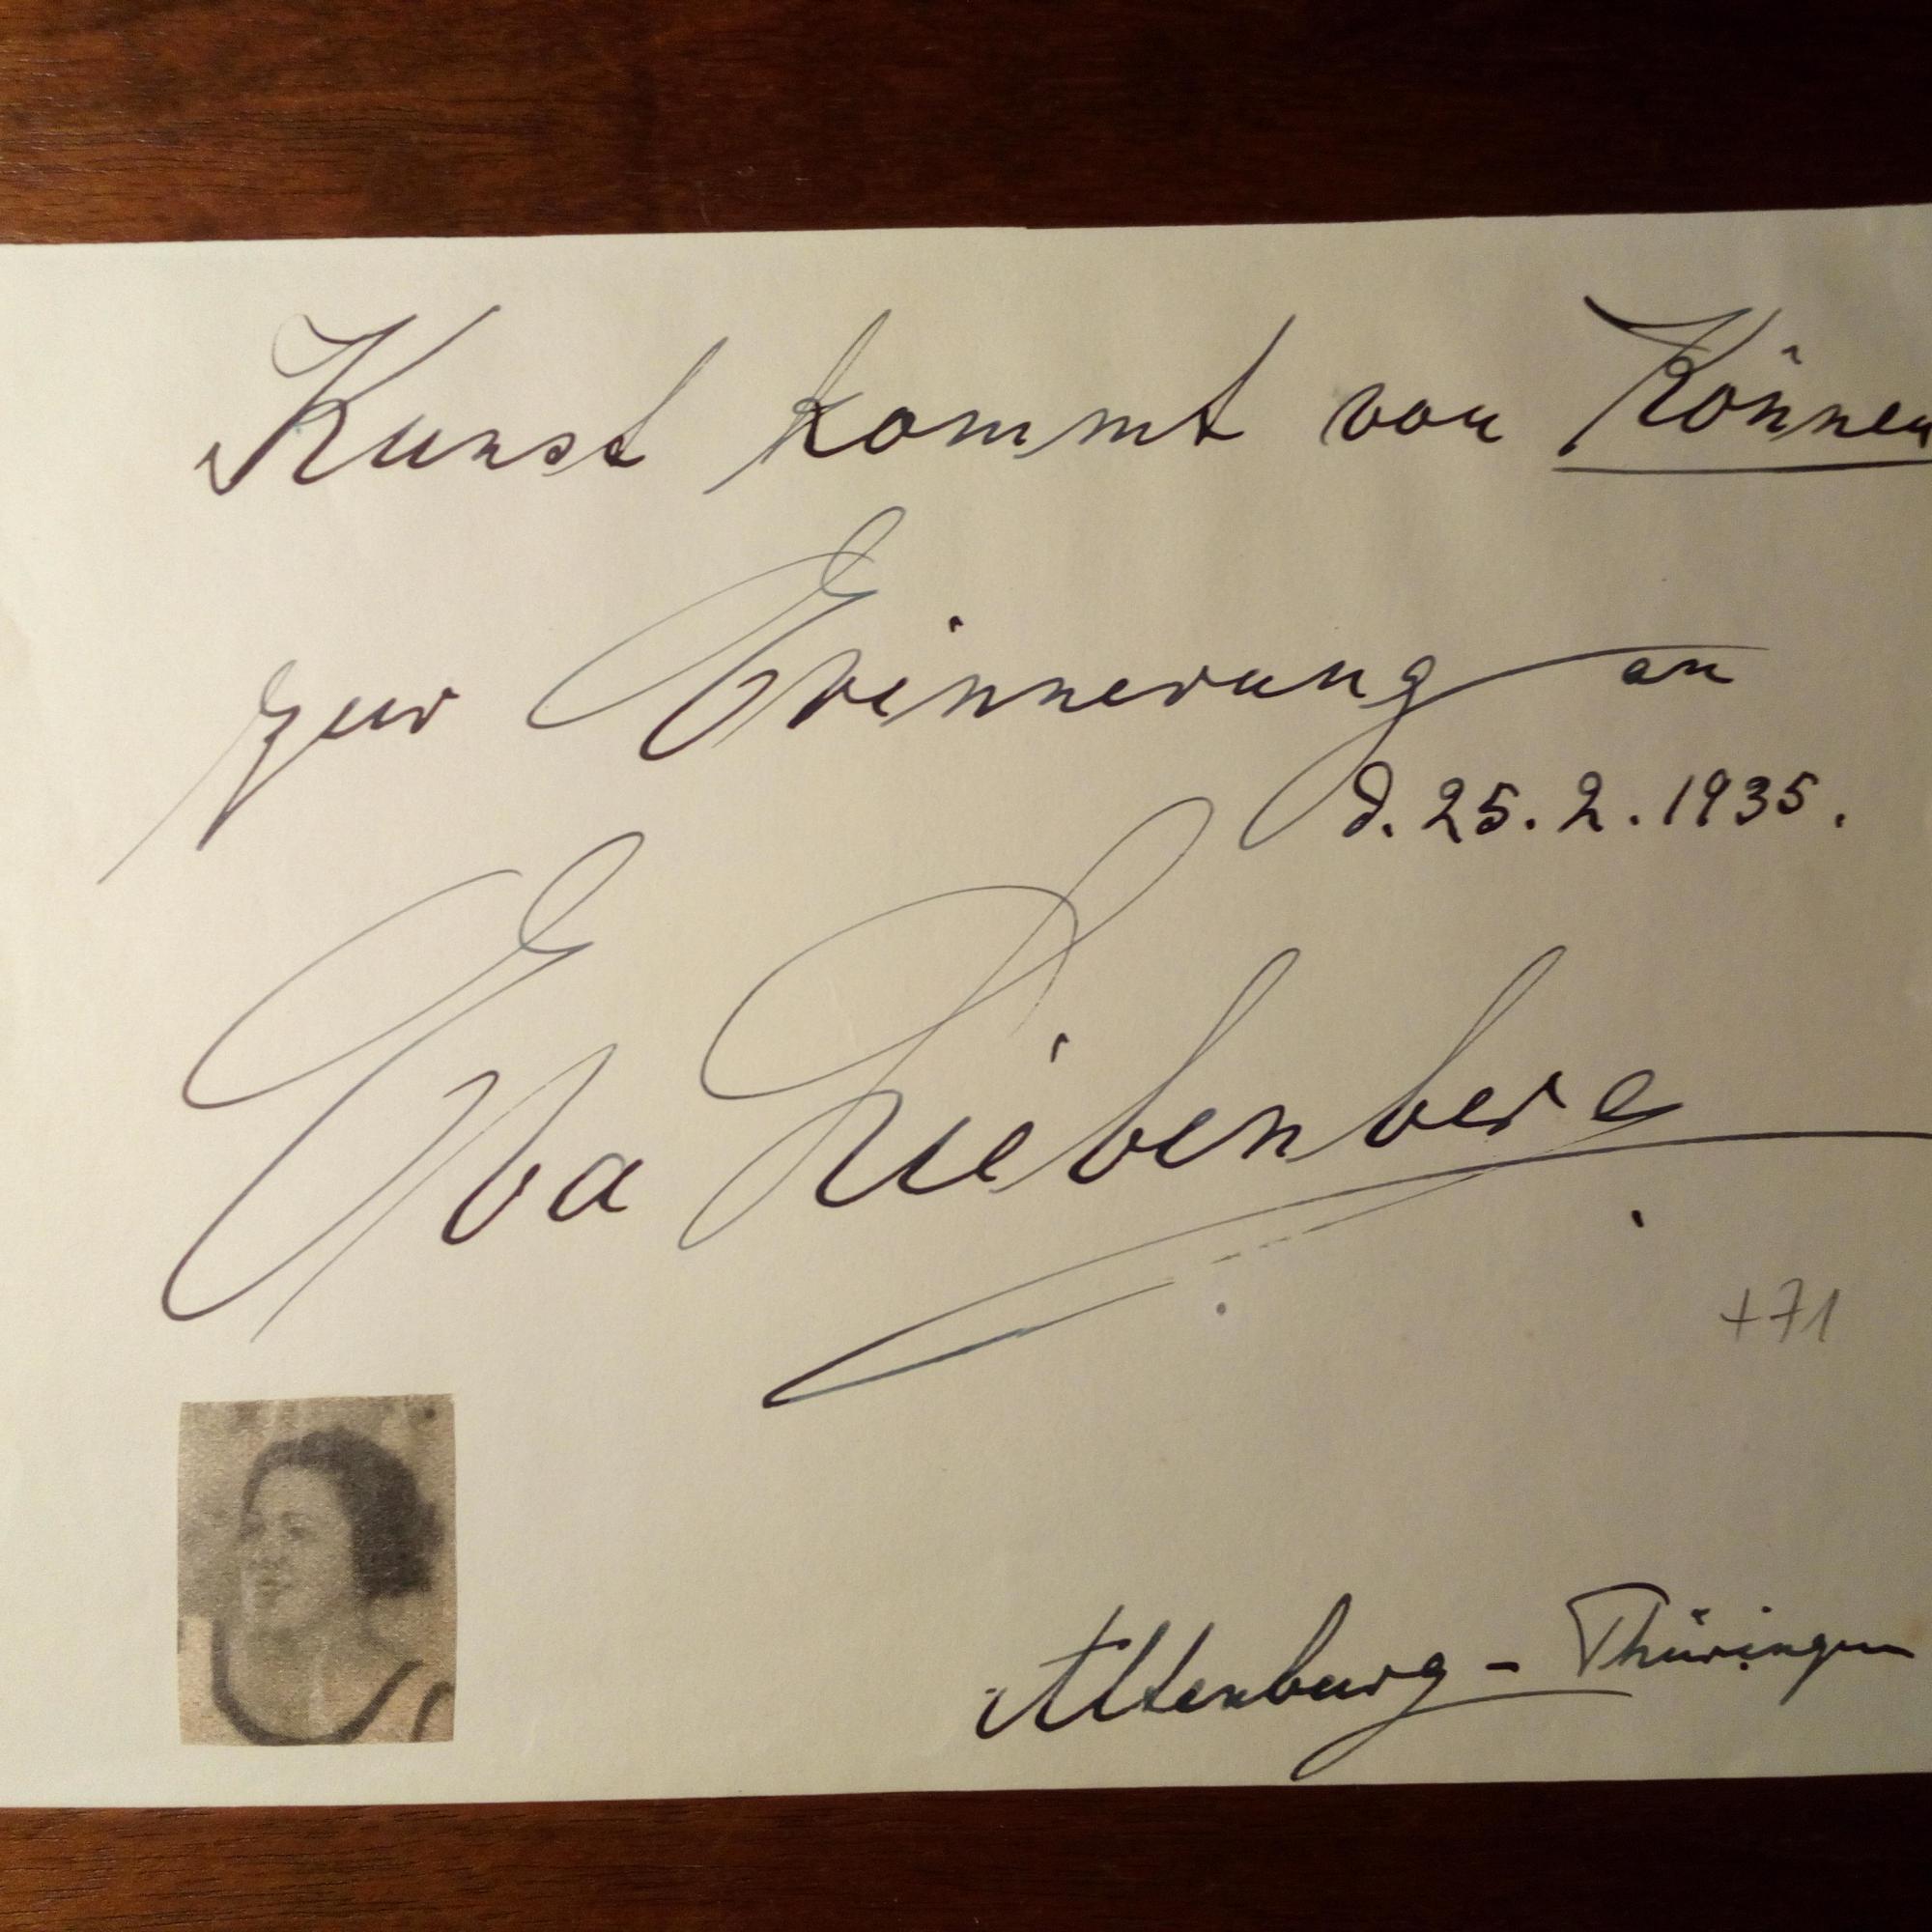 Kunst kommt von Können
zur Erinnerung an
d. 25. 2. 1935.
Eva Liebenberg
+71
Altenburg - Thüringen